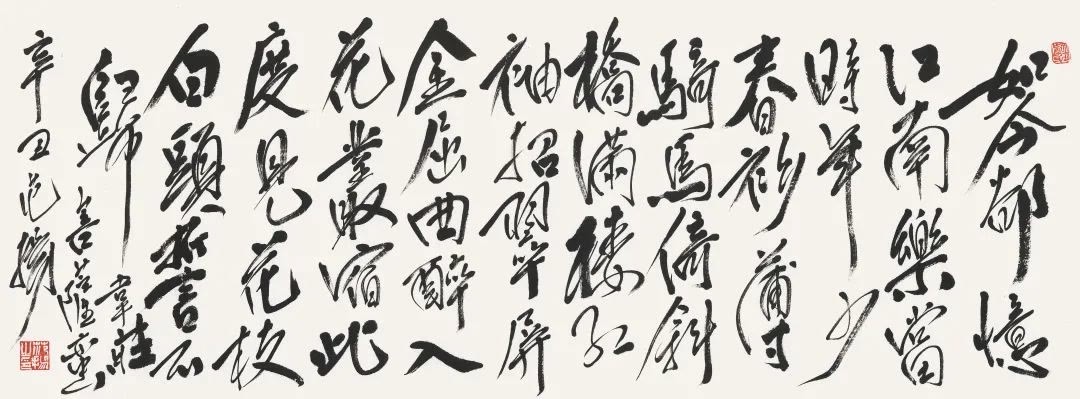 如今卻憶
江南樂當
時年少
春衫薄
騎馬倚斜
橋滿樓紅
袖招翠屏
金屈曲醉入
花叢宿此
度見花枝
白頭誓不
歸
韋莊
菩薩蠻
辛丑范揚